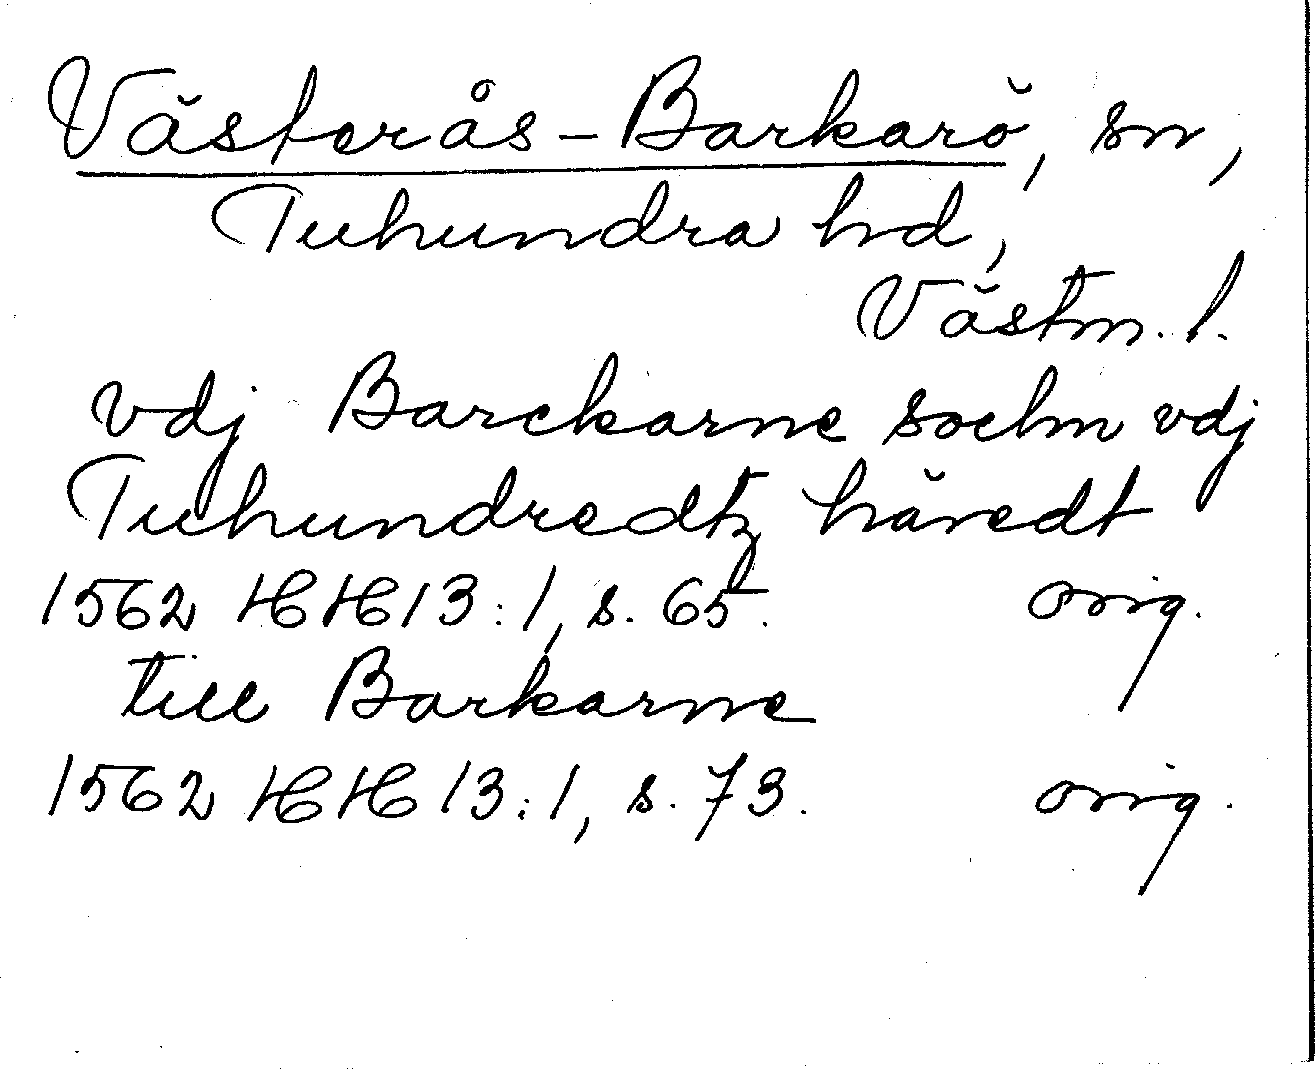 Västerås-Barkarö, sn,
Tuhundra hd,
Västm. l.
vdj Barckarne sochn vdj
Tuhundredtz häredt
1562 HH 13:1, s. 65. orig.
till Barkarne
1562 HH 13:1, s. 73. orig.